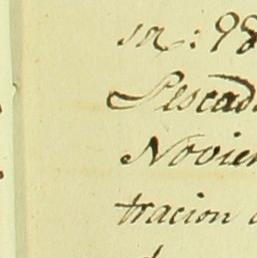 sa: 98
Pescad
Novien
tracion